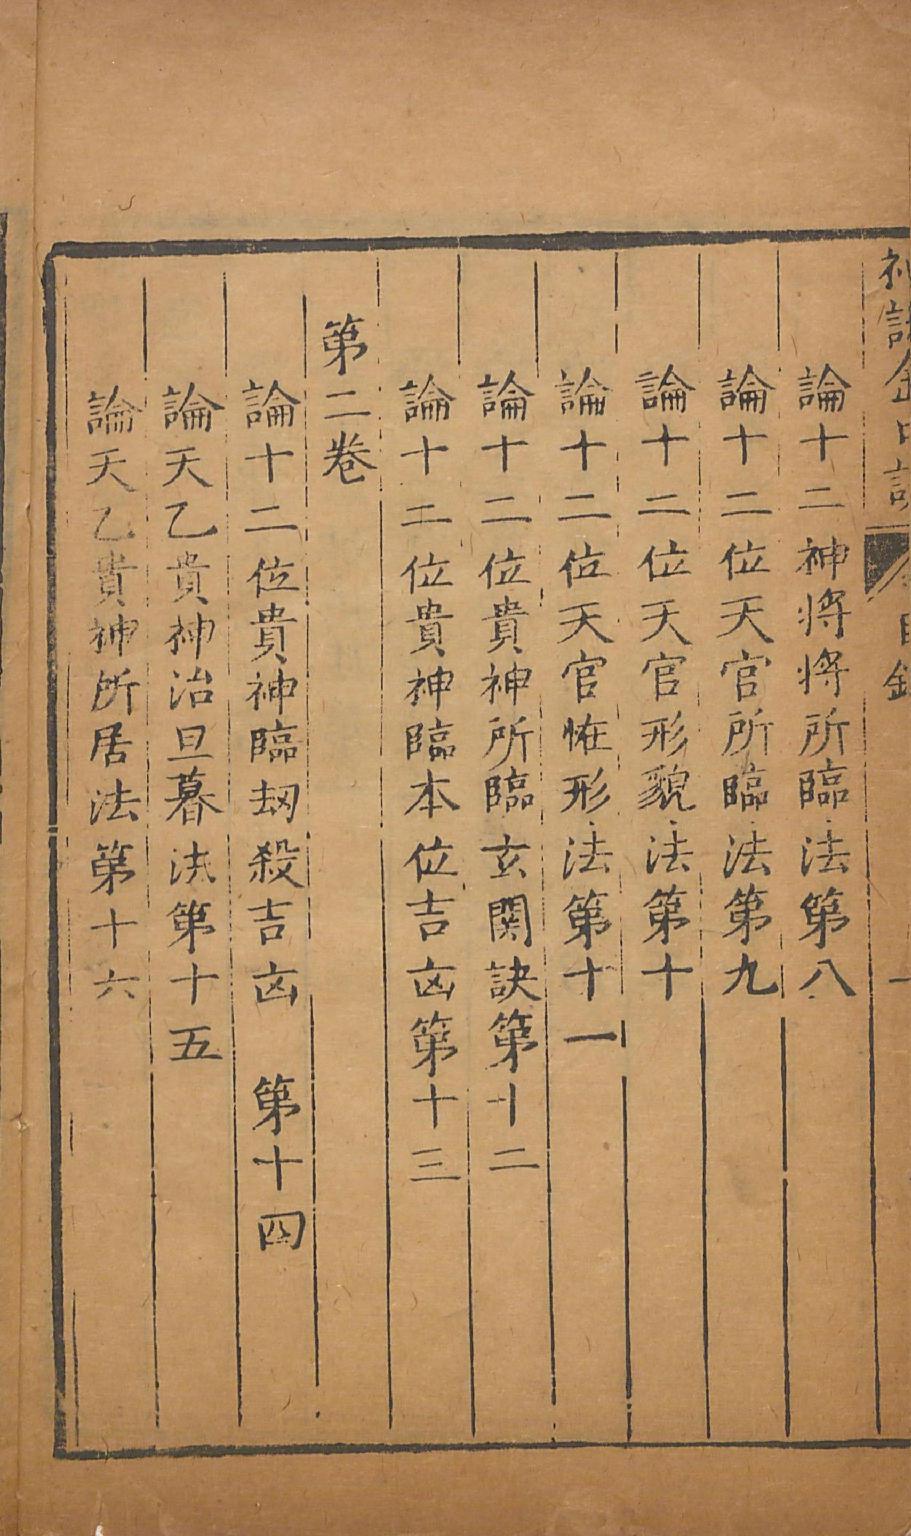 神課金口訣 目錄 一
論十二神將將所臨法第八
論十二位天官所臨法第九
論十二位天官形貌法第十
論十二位天官恠形法第十一
論十二位貴神所臨玄関訣第十二
論十二位貴神臨本位吉凶第十三
第二卷
論十二位貴神臨刼殺吉凶 第十四
論天乙貴神治旦暮法第十五
論天乙貴神所居法第十六